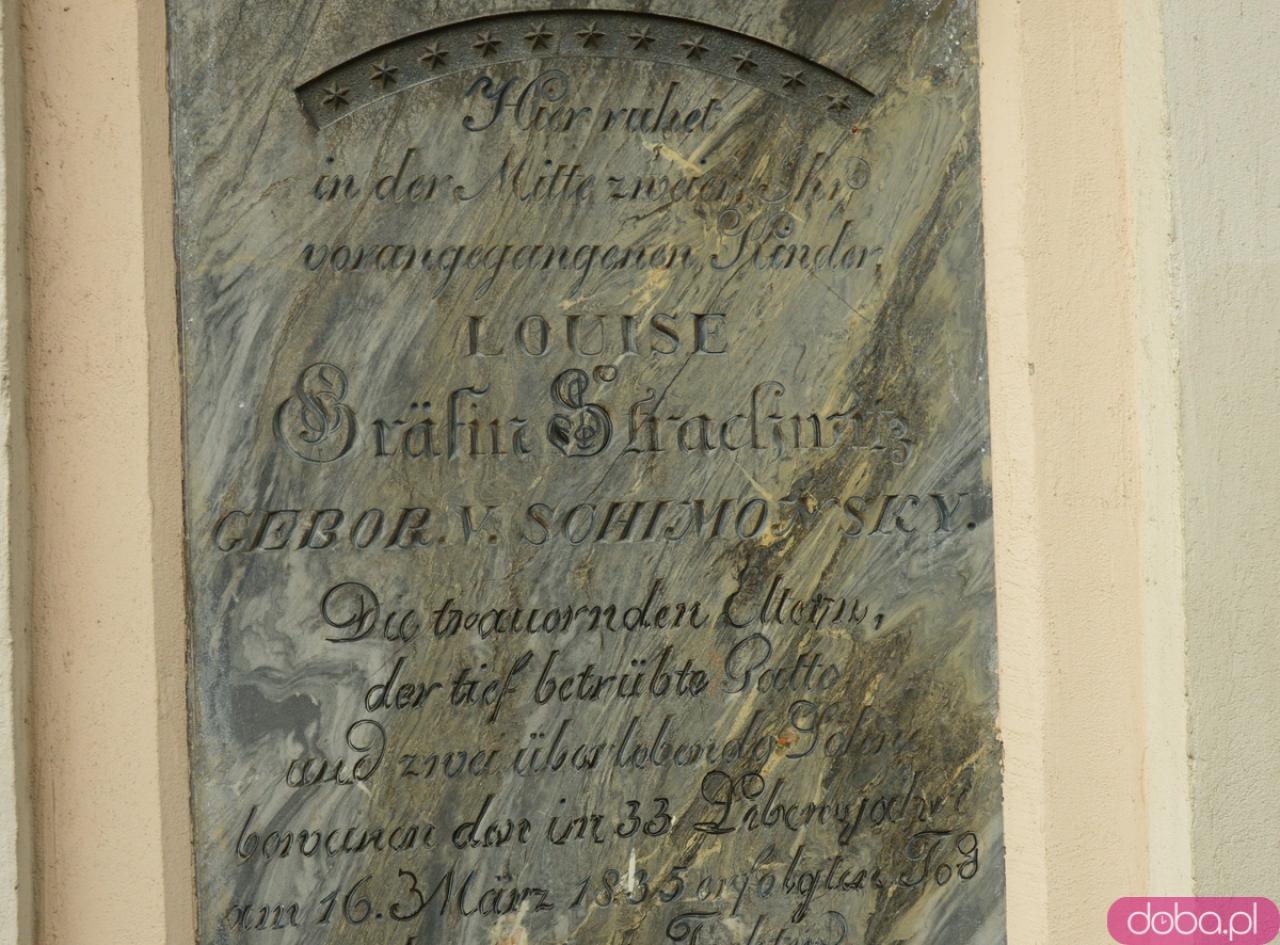 Hier ruhet
in der Mitte zweier Ihr
vorangegangenen Kinder,
LOUISE
Gräfin Strachwitz
GEBOR. V. SCHIMONSKY.
Die trauernden Eltern,
der tief betrübte Gatte
und zwei überlebende Söhne
beweinen den im 33 Lebensjahre
am 16. März 1835 erfolgten Tod
doba.pl